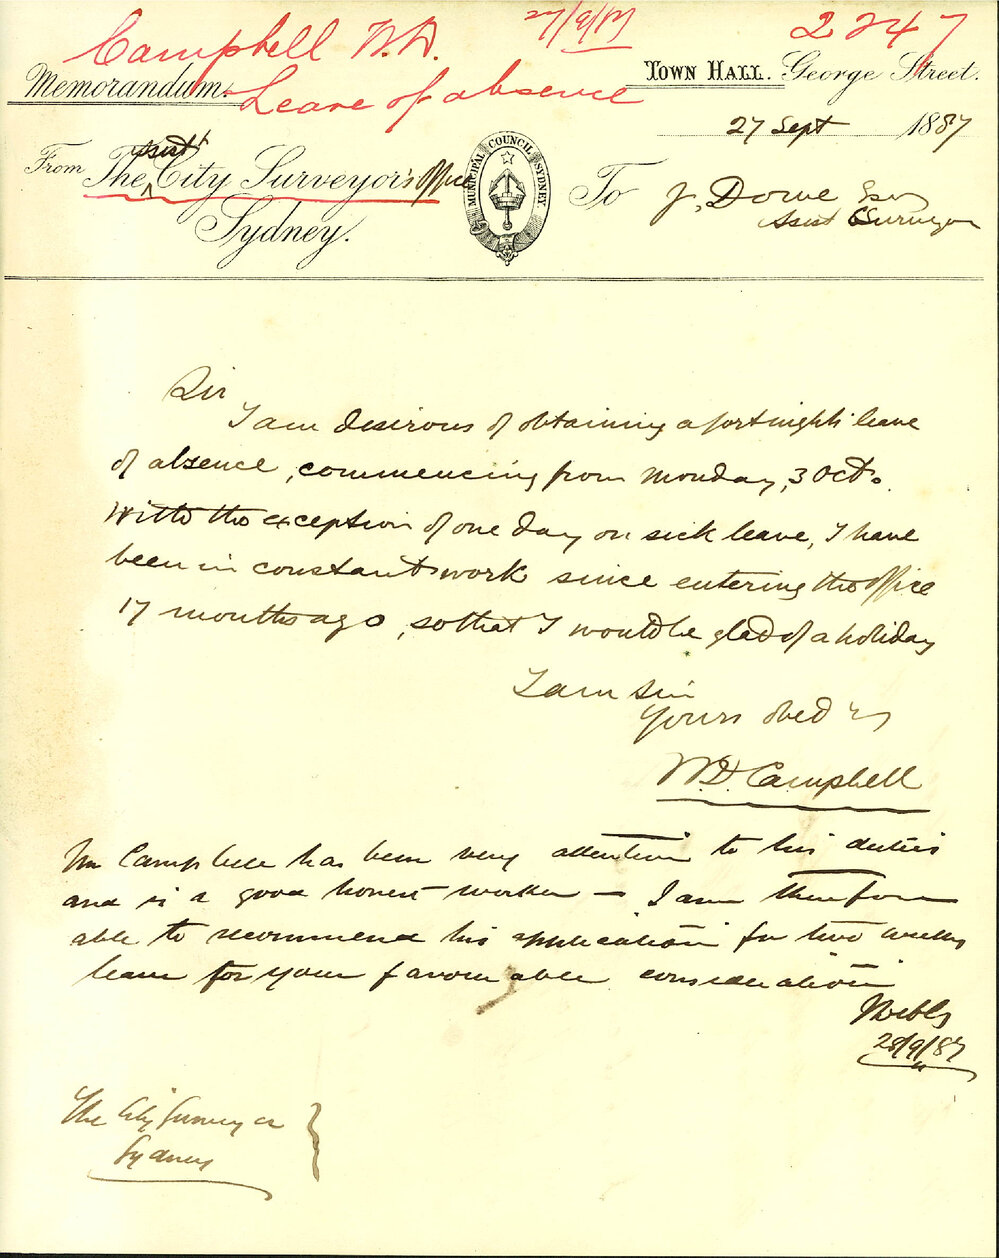 27/9/87
2247
Campbell W.D.
Leave of absence
Memorandum.
Town Hall. George Street.
27 Sept 1887
From The Asst City Surveyor's Office
Sydney.
MUNICIPAL COUNCIL SYDNEY.
To J. Dowe Esq
Asst CSurveyor
Sir
I am desirous of obtaining a fortnights leave
of absence, commencing from Monday, 3 Oct.
With the exception of one day on sick leave, I have
been in constant work since entering the office
17 months ago, so that I would be glad of a holiday
I am Sir
Yours obed
W.D. Campbell
Mr Campbell has been very attentive to his duties
and is a good honest worker — I am therefore
able to recommend his application for two weeks
leave for your favourable consideration
28/9/87
The City Surveyor
Sydney